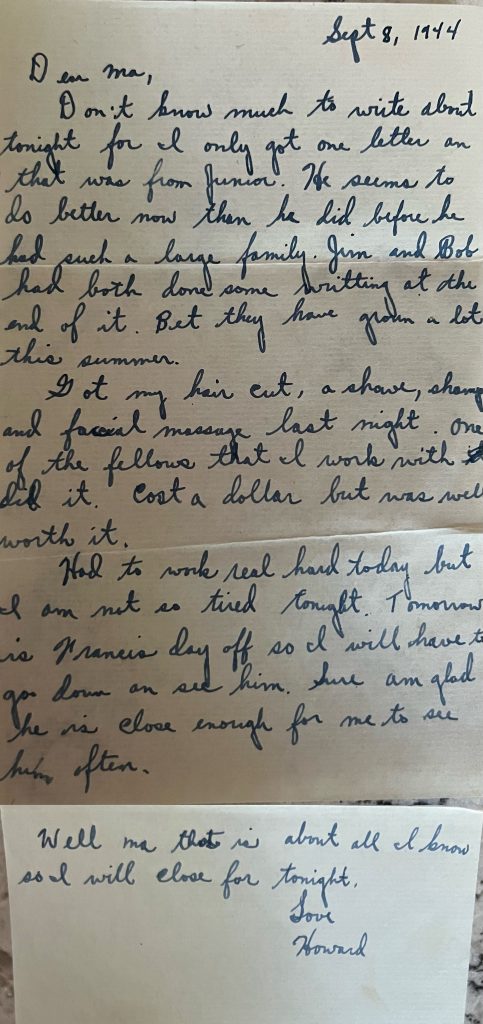 Sept 8, 1944
Dear ma,
Don't know much to write about
tonight for I only got one letter an
that was from Junior. He seems to
do better now than he did before he
had such a large family. Jim and Bob
had both done some writting at the
end of it. Bet they have grown a lot
this summer.
Got my hair cut, a shave, shamp
and facial massage last night. One
of the fellows that I work with
did it. Cost a dollar but was well
worth it.
Had to work real hard today but
I am not so tired tonight. Tomorrow
is Francis day off so I will have to
go down an see him. Sure am glad
he is close enough for me to see
him often.
Well ma that is about all I know
so I will close for tonight.
Love
Howard